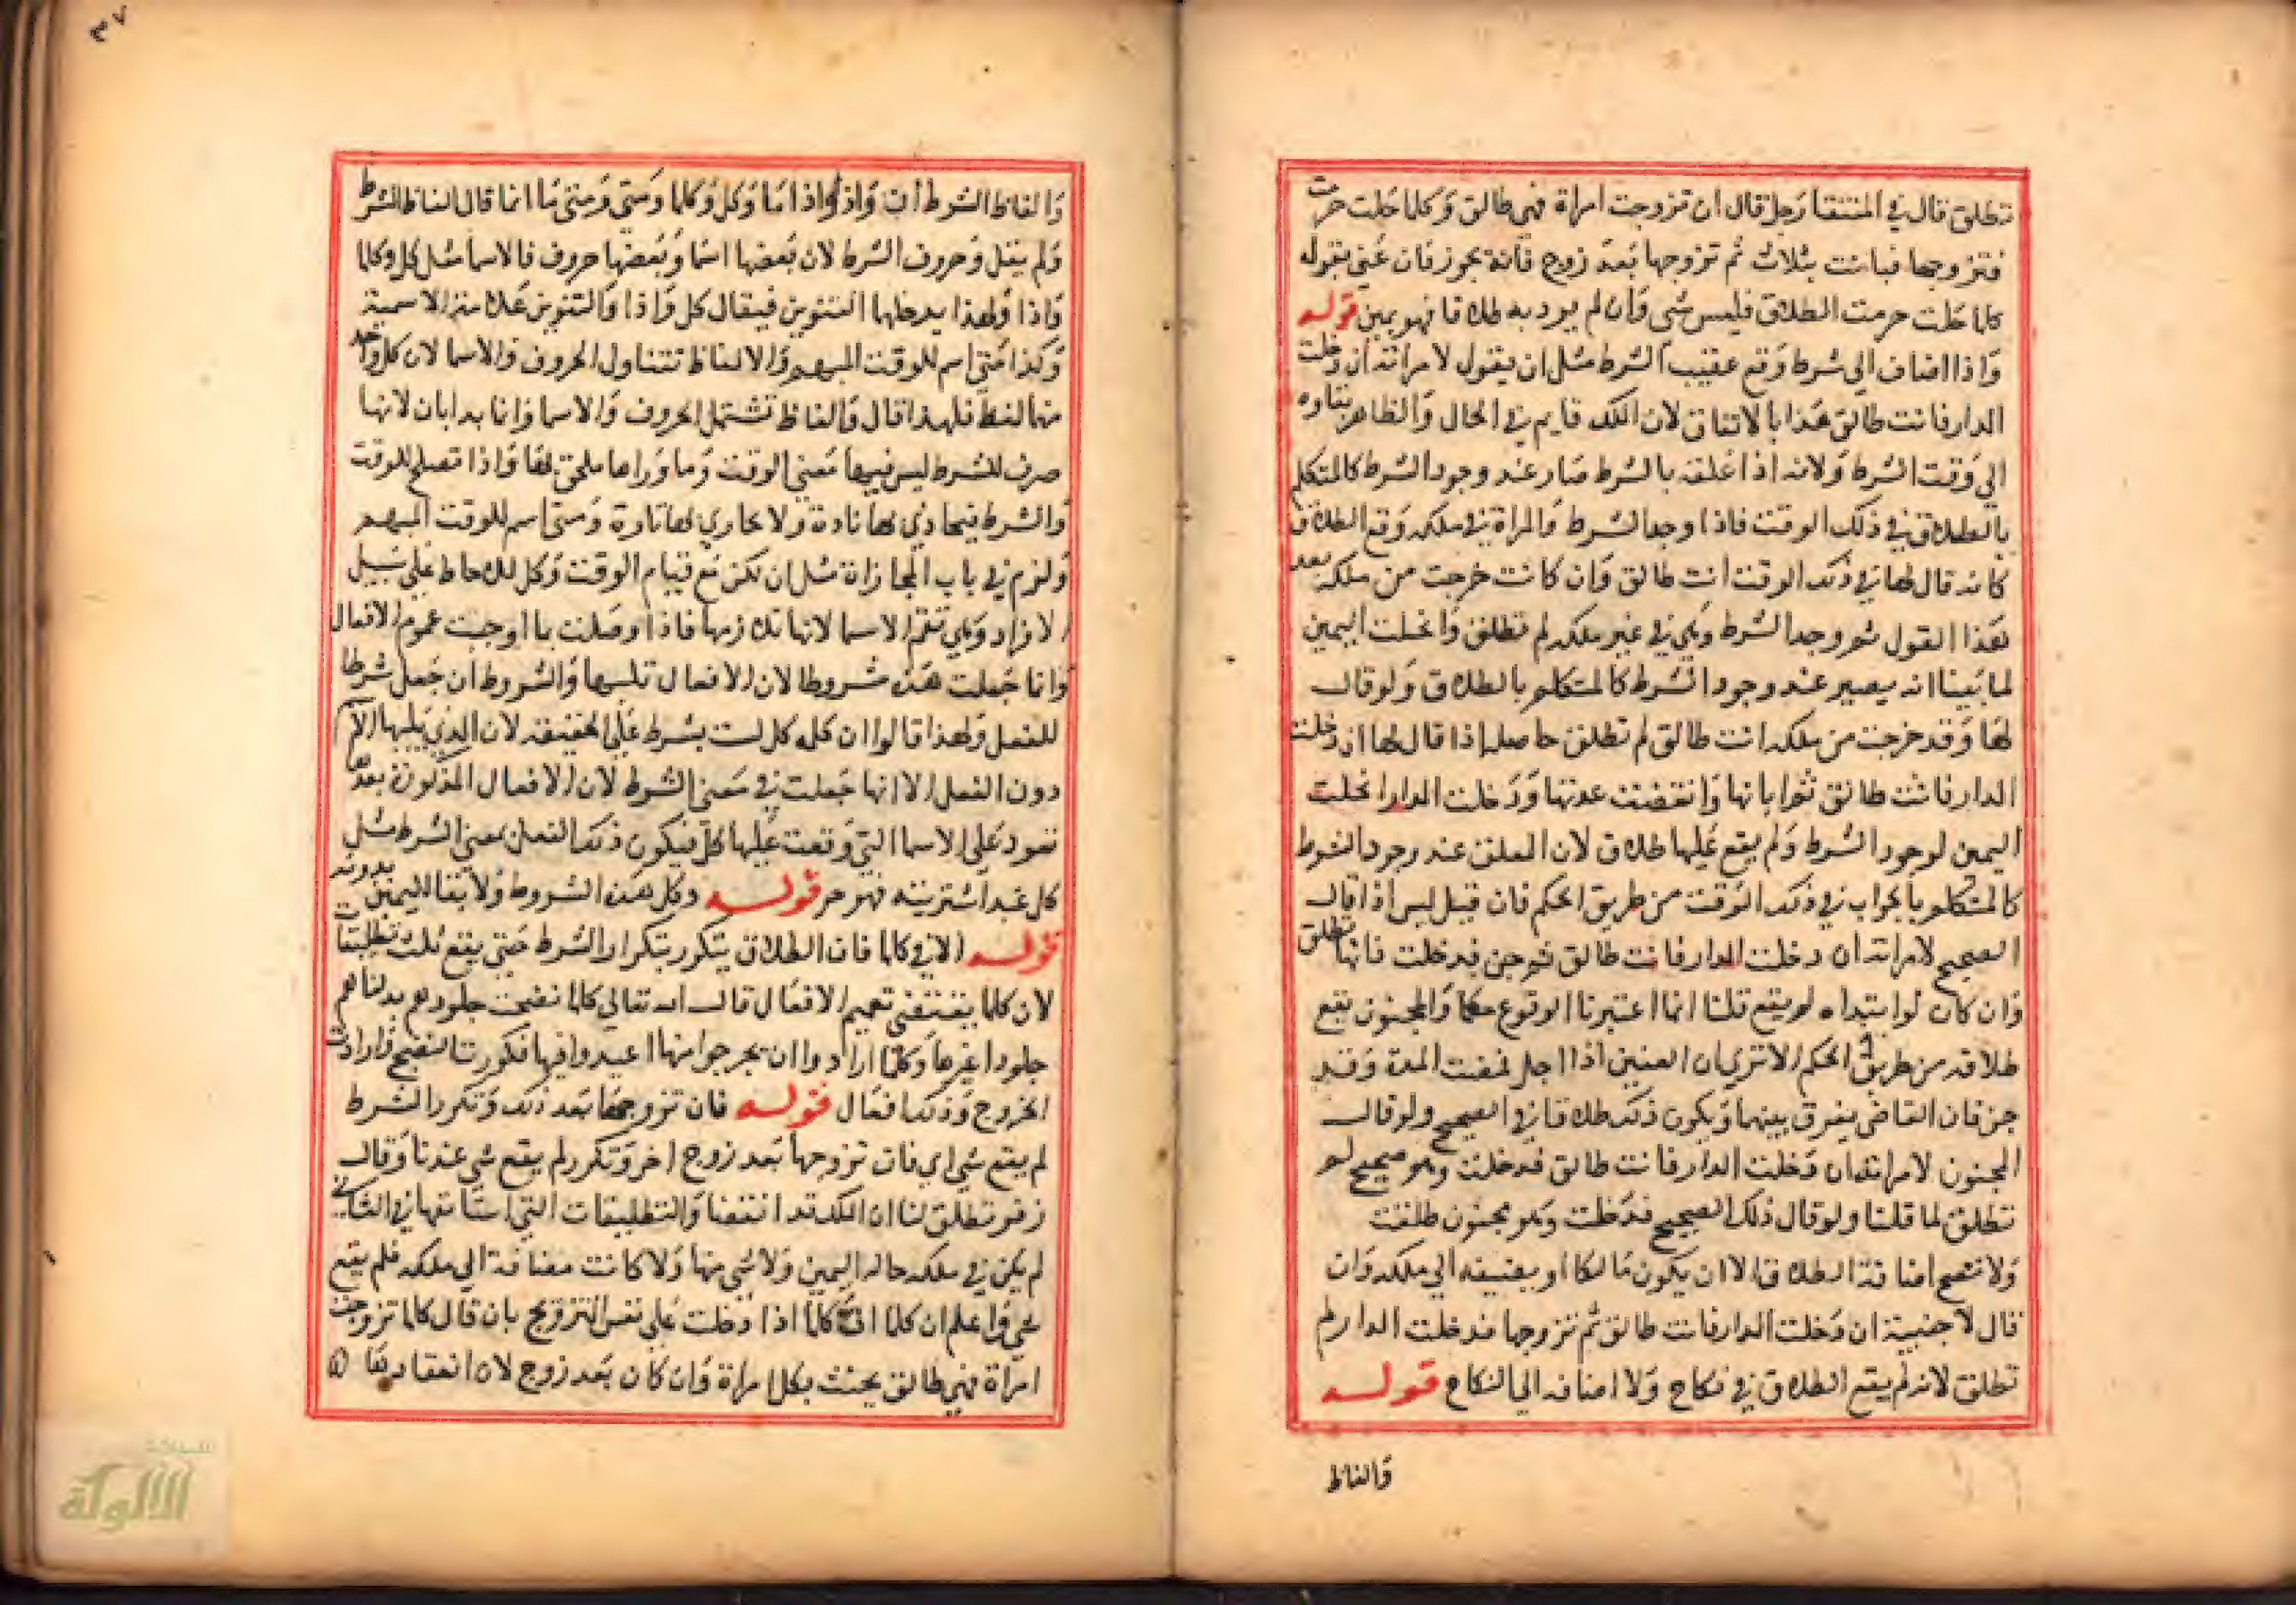 تطلق قال في المنتقا رجل قال ان تزوجت امراة فهي طالق وكلما حلت حرمت
فتزوجها فبانت بثلاث ثم تزوجها بعد زوج فانه يجوز فان عنى بقوله
كلما حلت حرمت الطلاق فليس شي وان لم يرد به طلاقا فهو يمين قوله
واذا اضاف الي شرط وقع عقيب الشرط مثل ان يقول لامراته ان دخلت
الدار فانت طالق هذا بالاتفاق لان الملك قايم في الحال والظاهر بقاوه
الي وقت الشرط ولانه اذا علقه بالشرط صار عند وجود الشرط كالمتكلم
بالطلاق في ذلك الوقت فاذا وجد الشرط والمراة في ملكه وقع الطلاق
كانه قال لها في ذلك الوقت انت طالق وان كانت خرجت من ملكه بعد
هذا القول ثم وجد الشرط وهي في غير ملكه لم تطلق وانحلت اليمين
لما بينا انه يصير عند وجود الشرط كالمتكلم بالطلاق ولو قال
لها وقد خرجت من ملكه انت طالق لم تطلق حاصله اذا قال لها ان دخلت
الدار فانت طالق ثم ابانها وانقضت عدتها ودخلت الدار انحلت
اليمين لوجود الشرط ولم يقع عليها طلاق لان المعلق عند وجود الشرط
كالمتكلم بالجواب في ذلك الوقت من طريق الحكم فان قيل ليس اذا قال
الصحيح لامراته ان دخلت الدار فانت طالق ثم جن فدخلت فانها تطلق
وان كان لو ابتداه لم يقع قلنا انما اعتبرنا الوقوع حكما والمجنون يقع
طلاقه من طريق الحكم الا تري ان العنين اذا اجل فمضت المدة وقد
جن فان القاضي يفرق بينهما ويكون ذلك طلاقا في الصحيح ولو قال
المجنون لامراته ان دخلت الدار فانت طالق فدخلت وهو صحيح لم
تطلق لما قلنا ولو قال ذلك الصحيح فدخلت وهو مجنون طلقت
ولا تصح اضافة الطلاق الا ان يكون مالكا او يضيفه الي ملكه وان
قال لاجنبية ان دخلت الدار فانت طالق ثم تزوجها فدخلت الدار لم
تطلق لانه لم يقع الطلاق في نكاح ولا اضافه الي النكاح قوله
والفاظ
٣٧
والفاظ الشرط ان واذ واذا ما وكل وكلما ومتى ومتى ما انما قال الفاظ الشرط
ولم يقل وحروف الشرط لان بعضها اسما وبعضها حروف فالاسما مثل كل وكلما
واذا ولهذا يدخلها التنوين فيقال كل واذا والتنوين علامة الاسمية
وكذا متى اسم للوقت المبهم والالفاظ تتناول الحروف والاسما لان كل واحد
منها لفظ فلهذا قال والفاظ تشتمل الحروف والاسما وانما بدا بان لانها
صرف للشرط ليس فيها معنى الوقت وما وراها ملحق بها واذا تصلح للوقت
والشرط فيجاذي بها تارة ولا يجازي بها تارة ومتى اسم للوقت المبهم
ولزم في باب المجازاة مثل ان لكن مع قيام الوقت وكل للاحاطة على سبيل
الافراد وهي تعم الاسما لانها تلازمها فاذا وصلت بما اوجبت عموم الافعال
وانما جعلت هذه شروطا لان الافعال تليها والشروط ان جعل شرطا
للفعل ولهذا قالوا ان كلمه كل لست بشرط على الحقيقه لان الذي يليها الاسم
دون الفعل الا انها جعلت في معنى الشرط لان الافعال المذكورة بعدها
تعود على الاسما التي وقعت عليها كل فيكون ذلك الفعل بمعنى الشرط مثل
كل عبد اشتريته فهو حر قوله وكل هذه الشروط ولا بقا لليمين بدونه
قوله الا في كلما فان الطلاق يتكرر بتكرار الشرط حتى يقع ثلث تطليقات
لان كلما يقتضي تعميم الافعال قال الله تعالي كلما نضجت جلودهم بدلناهم
جلودا غيرها وكلما ارادوا ان يخرجوا منها اعيدوا فيها فكررت النضج وارادت
الخروج وذلك افعال قوله فان تزوجها بعد ذلك وتكرر الشرط
لم يقع شي اي فان تزوجها بعد زوج اخر وتكرر لم يقع شي عندنا وقال
زفر تطلق لنا ان الملك قد انقضا والتطليقات التي استانفها في الثاني
لم يكن في ملكه حاله اليمين ولا شي منها ولا كانت مضافة الي ملكه فلم يقع
شي واعلم ان كلما اذا دخلت على نفس التزويج بان قال كلما تزوجت
امراة فهي طالق يحنث بكل امراة وان كان بعد زوج لان انعقادها
شبكة
الألوكة